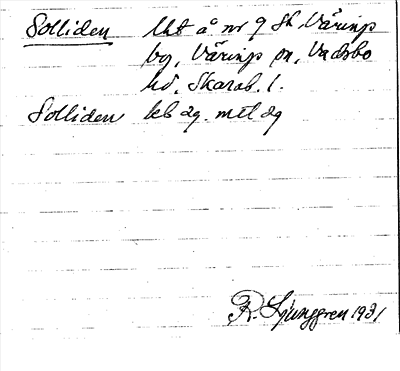 Solliden lht å nr 9 Sk, Väring
by, Värings sn, Vadsbo
hd, Skarab. l.
Solliden leb ag. met ag
R. Ljunggren 1931